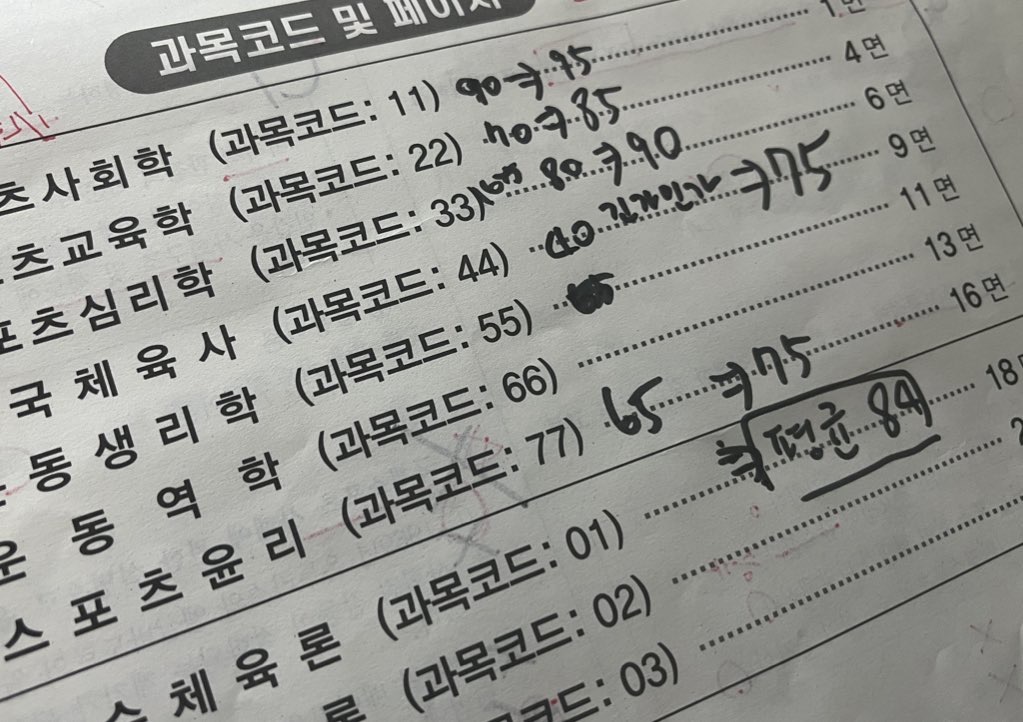 과목코드 및 페이지
츠사회학 (과목코드: 11) 90⇒95 1면
츠교육학 (과목코드: 22) 70⇒85 4면
포츠심리학 (과목코드: 33) 80⇒90 6면
국체육사 (과목코드: 44) 40 ⇒75 9면
동생리학 (과목코드: 55) 11면
운동역학 (과목코드: 66) 13면
스포츠윤리 (과목코드: 77) 65 ⇒75 16면
체육론 (과목코드: 01) ⇒ 평균 84 18면
론 (과목코드: 02) 2
코드: 03)